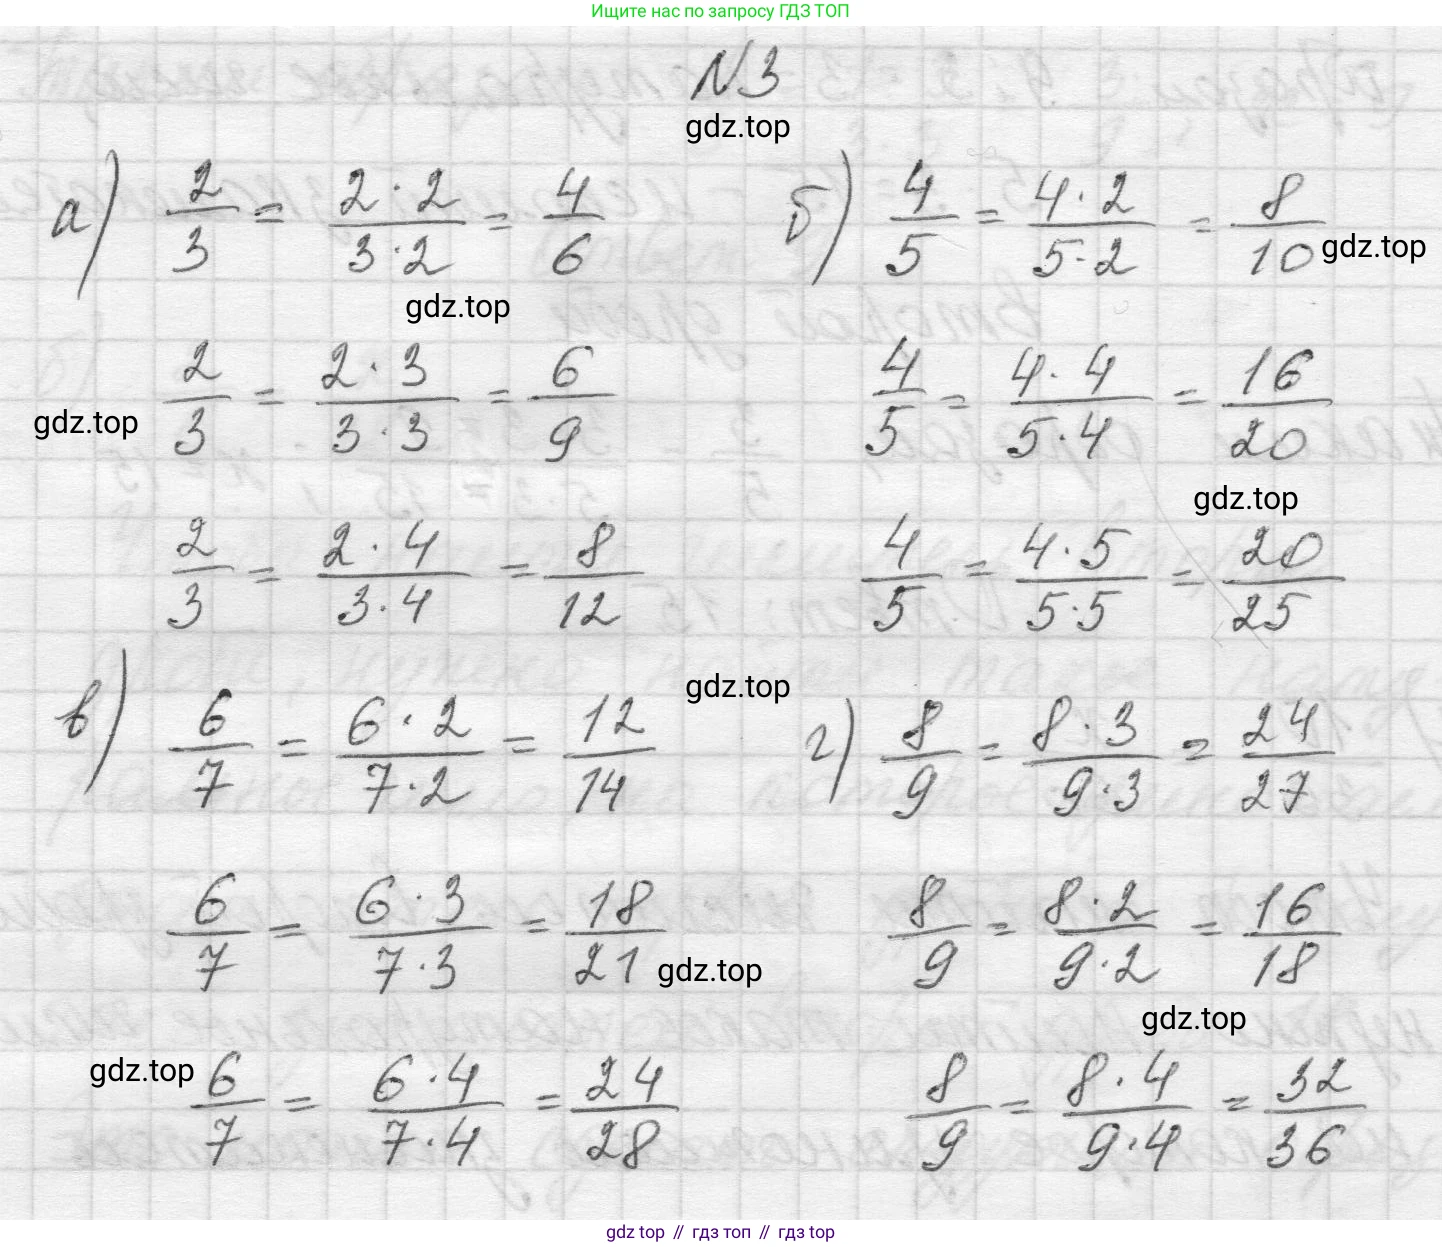 Ищите нас по запросу ГДЗ ТОП
N3
gdz.top
а) 2/3 = 2·2/3·2 = 4/6
б) 4/5 = 4·2/5·2 = 8/10
gdz.top
gdz.top
2/3 = 2·3/3·3 = 6/9
4/5 = 4·4/5·4 = 16/20
gdz.top
gdz.top
2/3 = 2·4/3·4 = 8/12
4/5 = 4·5/5·5 = 20/25
gdz.top
в) 6/7 = 6·2/7·2 = 12/14
г) 8/9 = 8·3/9·3 = 24/27
6/7 = 6·3/7·3 = 18/21
8/9 = 8·2/9·2 = 16/18
gdz.top
gdz.top
gdz.top
6/7 = 6·4/7·4 = 24/28
8/9 = 8·4/9·4 = 32/36
gdz top // гдз топ // гдз top